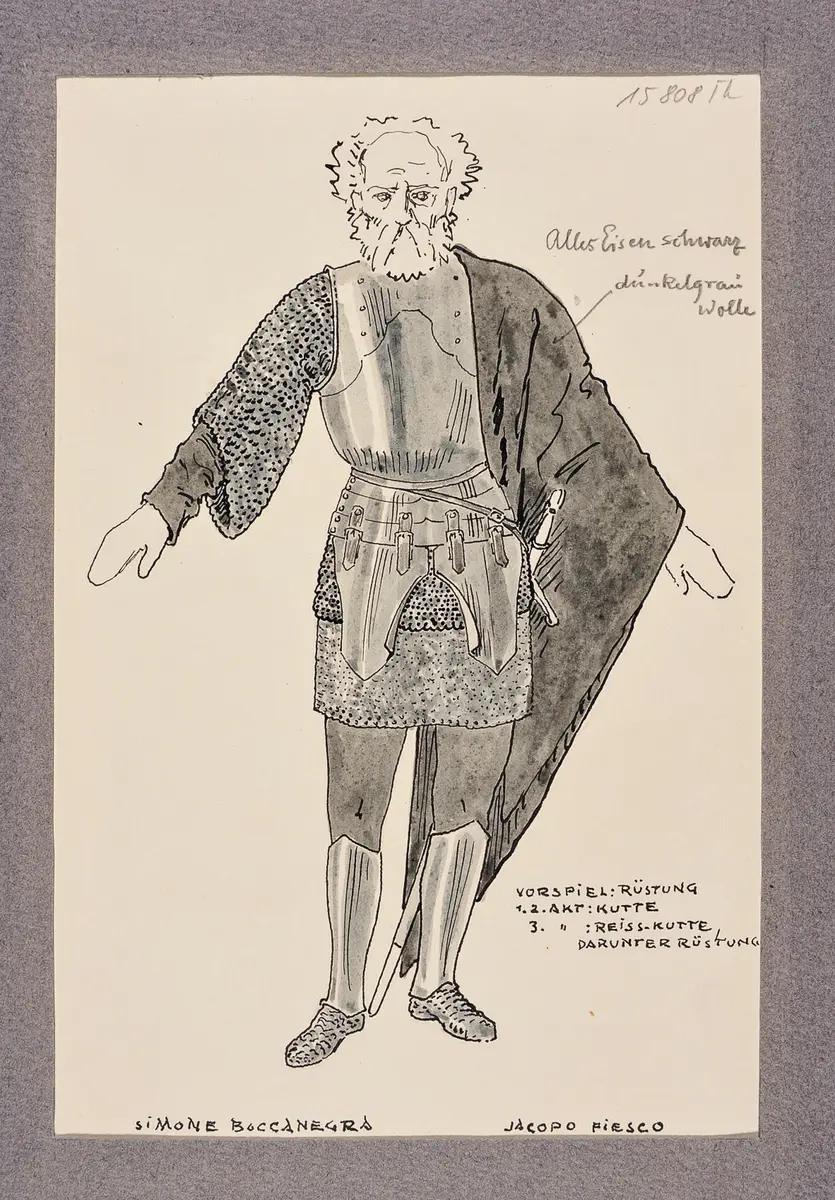 15 808 Th
Alles Eisen schwarz
dunkelgrau
Wolle
VORSPIEL: RÜSTUNG
1.2. AKT: KUTTE
3. " : REISS-KUTTE,
DARUNTER RÜSTUNG
SIMONE BOCCANEGRA JACOPO FIESCO